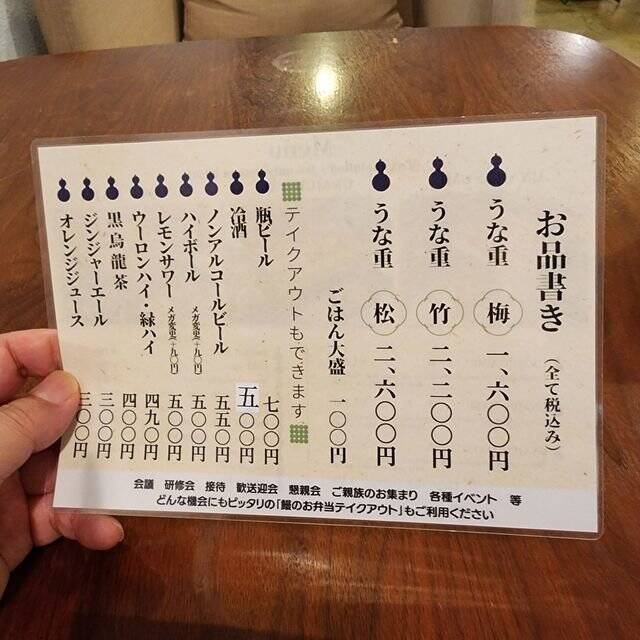 お品書き (全て税込み)
うな重 梅 一、六〇〇円
うな重 竹 二、二〇〇円
うな重 松 二、六〇〇円
ごはん大盛 一〇〇円
テイクアウトもできます
瓶ビール 七〇〇円
冷酒 五〇〇円
ノンアルコールビール 五五〇円
ハイボール メガ変更+九〇円 五〇〇円
レモンサワー メガ変更+九〇円 五〇〇円
ウーロンハイ・緑ハイ 四九〇円
黒烏龍茶 四〇〇円
ジンジャーエール 三〇〇円
オレンジジュース 三〇〇円
会議 研修会 接待 歓送迎会 懇親会 ご親族のお集まり 各種イベント 等
どんな機会にもピッタリの「鰻のお弁当テイクアウト」もご利用ください